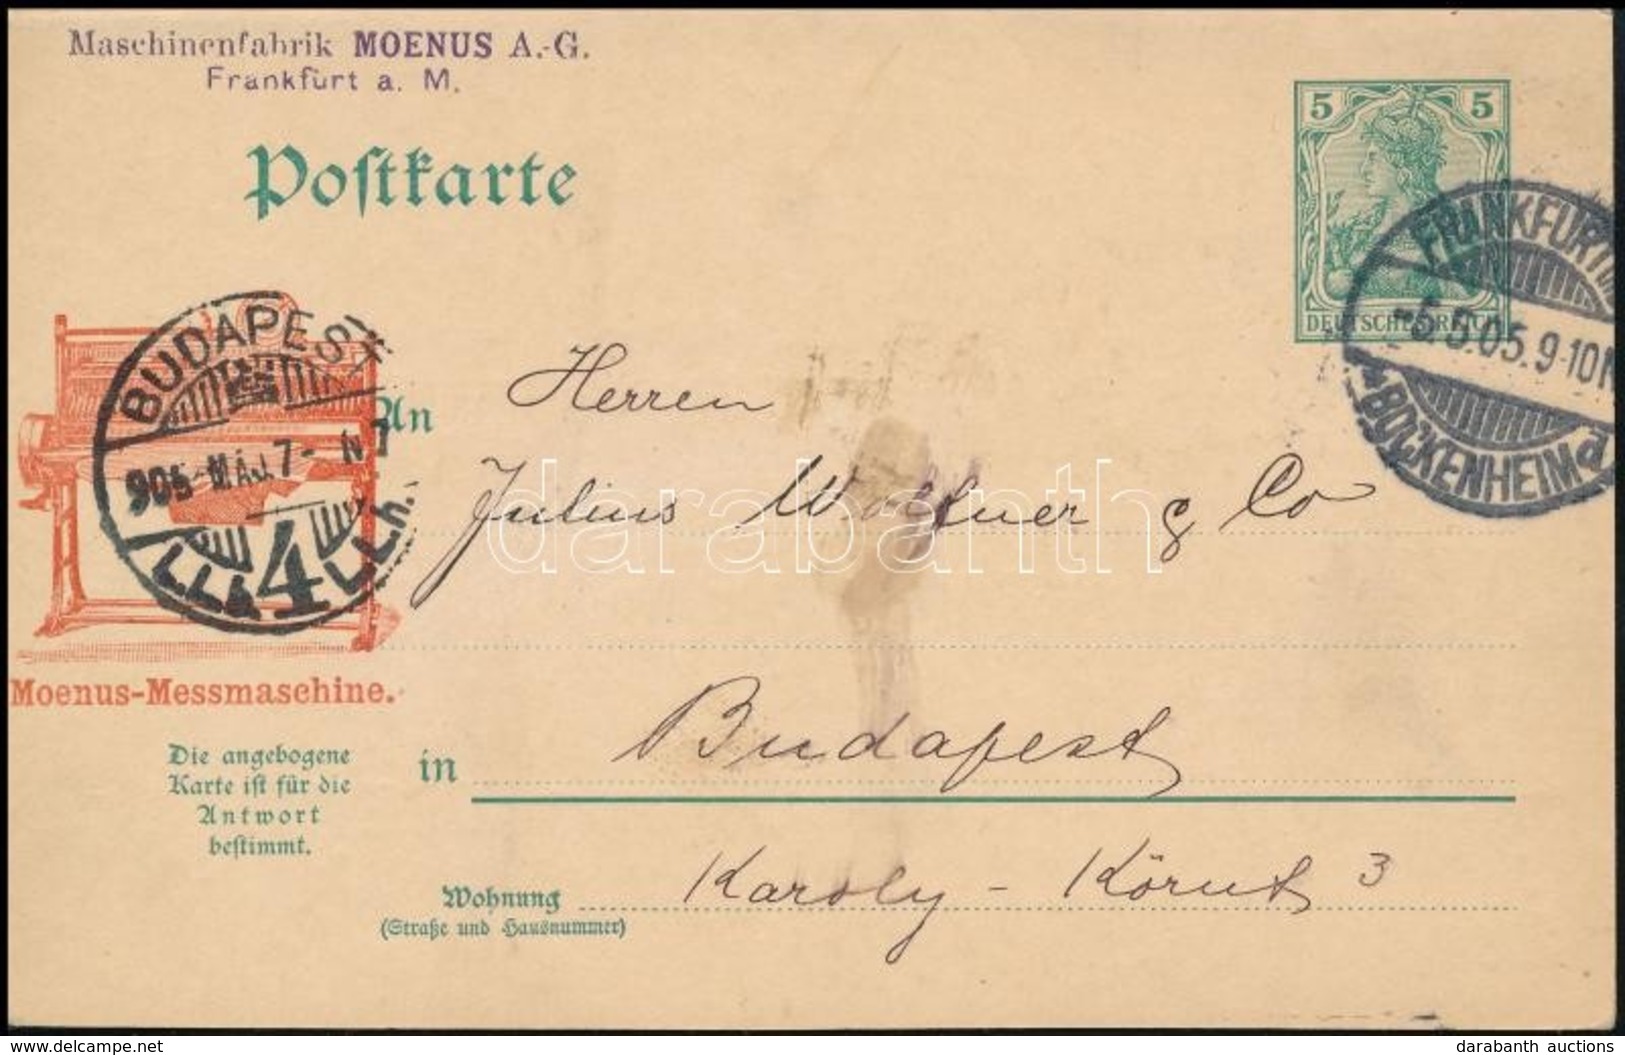 Maschinenfabrik MOENUS A.-G.
Frankfurt a. M.
Postkarte
5 5
DEUTSCHES REICH
FRANKFURT
5.05.9-10N
BOCKENHEIM d
BUDAPEST
905 MÁJ. 7 - N 7
4
An
Herren
Julius Wolfner & Co
darabanth
Moenus-Messmaschine.
Die angebogene
Karte ist für die
Antwort
bestimmt.
in Budapest
Wohnung Karoly - Körut 3
(Straße und Hausnummer)
www.delcampe.net
darabanth auctions